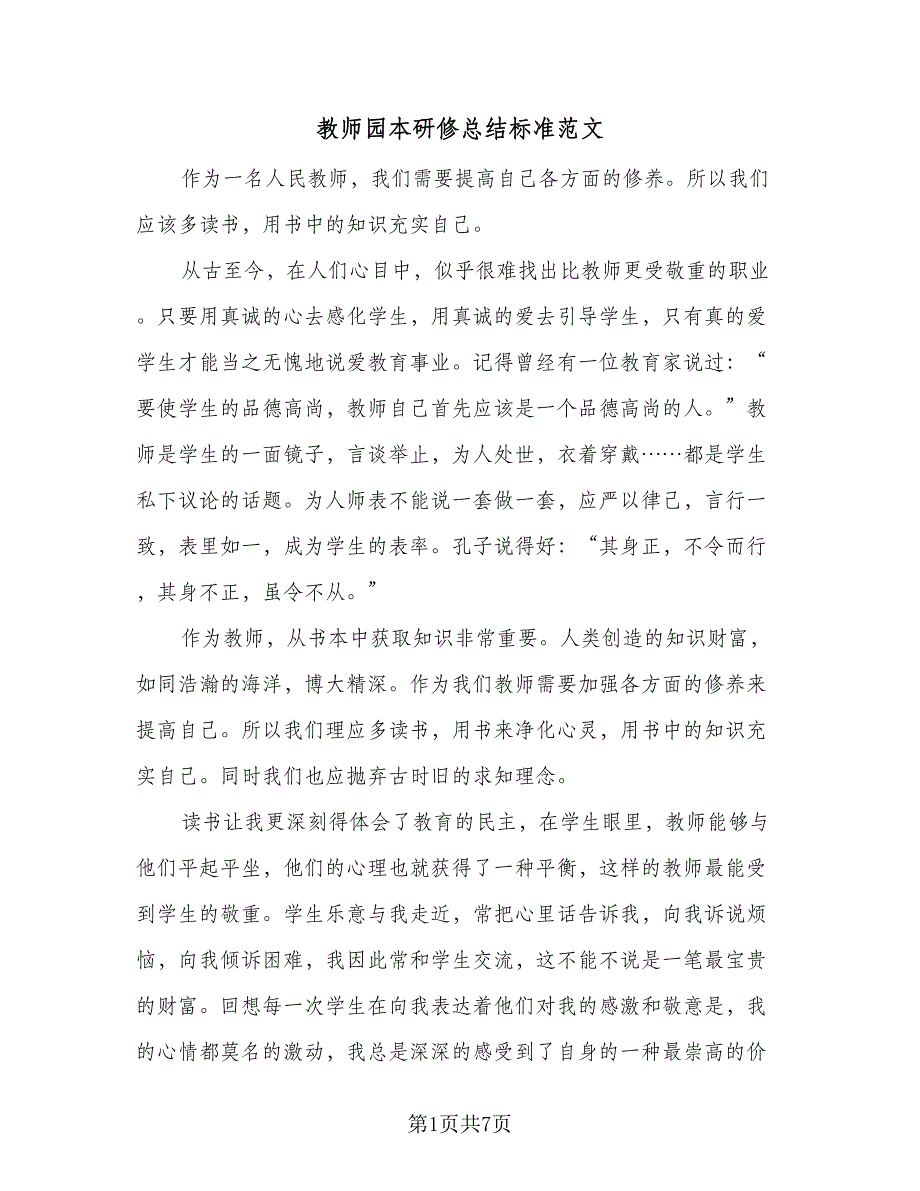 教师园本研修总结标准范文
作为一名人民教师，我们需要提高自己各方面的修养。所以我们
应该多读书，用书中的知识充实自己。
从古至今，在人们心目中，似乎很难找出比教师更受敬重的职业
。只要用真诚的心去感化学生，用真诚的爱去引导学生，只有真的爱
学生才能当之无愧地说爱教育事业。记得曾经有一位教育家说过：“
要使学生的品德高尚，教师自己首先应该是一个品德高尚的人。”教
师是学生的一面镜子，言谈举止，为人处世，衣着穿戴……都是学生
私下议论的话题。为人师表不能说一套做一套，应严以律己，言行一
致，表里如一，成为学生的表率。孔子说得好：“其身正，不令而行
，其身不正，虽令不从。”
作为教师，从书本中获取知识非常重要。人类创造的知识财富，
如同浩瀚的海洋，博大精深。作为我们教师需要加强各方面的修养来
提高自己。所以我们理应多读书，用书来净化心灵，用书中的知识充
实自己。同时我们也应抛弃古时旧的求知理念。
读书让我更深刻得体会了教育的民主，在学生眼里，教师能够与
他们平起平坐，他们的心理也就获得了一种平衡，这样的教师最能受
到学生的敬重。学生乐意与我走近，常把心里话告诉我，向我诉说烦
恼，向我倾诉困难，我因此常和学生交流，这不能不说是一笔最宝贵
的财富。回想每一次学生在向我表达着他们对我的感激和敬意是，我
的心情都莫名的激动，我总是深深的感受到了自身的一种最崇高的价
第1页共7页